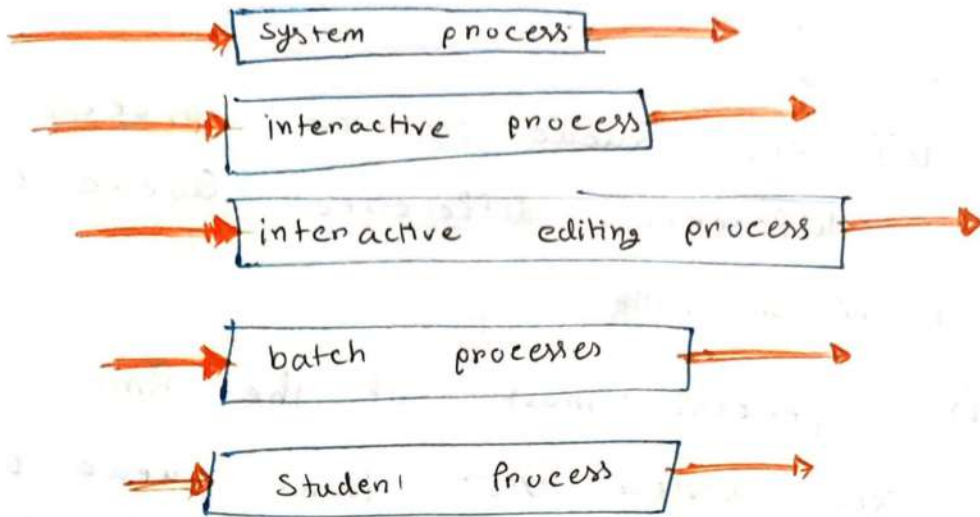 system process
interactive process
interactive editing process
batch processes
Student Process